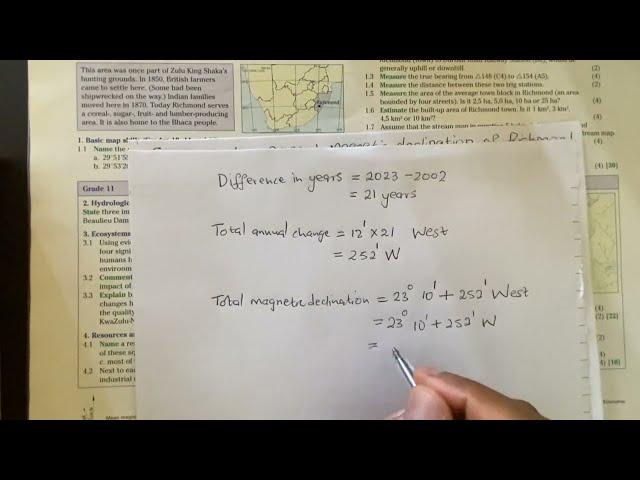 This area was once part of Zulu King Shaka's
hunting grounds. In 1850, British farmers
came to settle here. (Some had been
shipwrecked on the way.) Indian families
moved here in 1870. Today Richmond serves
a cereal-, sugar-, fruit- and lumber-producing
area. It is also home to the Bhaca people.
Richmond
generally uphill or downhill.
1.3 Measure the true bearing from △148 (C4) to △154 (A5). (4)
1.4 Measure the distance between these two trig stations. (2)
1.5 Measure the area of the average town block in Richmond (an area
bounded by four streets). Is it 2,5 ha, 5,0 ha, 10 ha or 25 ha? (4)
1.6 Estimate the built-up area of Richmond town. Is it 1 km², 3 km²,
4,5 km² or 10 km²?
1.7 Assume that the stream
1. Basic map
1.1 Name the
a. 29°51'5
b. 29°53'2
magnetic declination of Richmond
(4) [30]
Grade 11
2. Hydrolog
State three im
Beaulieu Dam
3. Ecosystem
3.1 Using evi
four signi
humans h
environm
3.2 Comment
impact of
3.3 Explain b
changes h
the quality
KwaZulu-N
4. Resources a
4.1 Name a re
of these s
c. most of
4.2 Next to ea
industrial
Difference in years = 2023 - 2002
= 21 years
Total annual change = 12' × 21 West
= 252' W
Total magnetic declination = 23° 10' + 252' West
= 23° 10' + 252' W
=
(4)
(2) [22]
(4)
(4) [18]